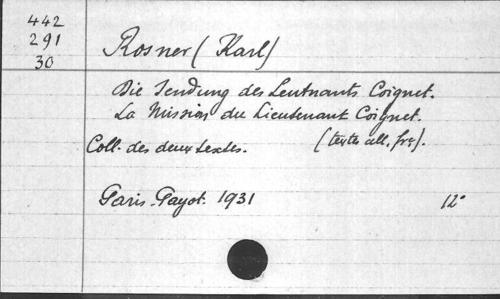 442
291
30
Rosner (Karl)
Die Sendung des Leutnants Coignet.
La Mission du Lieutenant Coignet.
(texte all. frç).
Coll. des deux textes.
Paris. Payot. 1931 12°